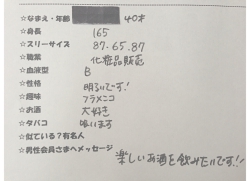 ☆なまえ・年齢 40才
☆身長 165
☆スリーサイズ 87.65.87
☆職業 化粧品販売
☆血液型 B
☆性格 明るいです!
☆趣味 フラメンコ
☆お酒 大好き
☆タバコ 吸います
☆似ている?有名人
☆男性会員さまへメッセージ
楽しいお酒を飲みたいです!!